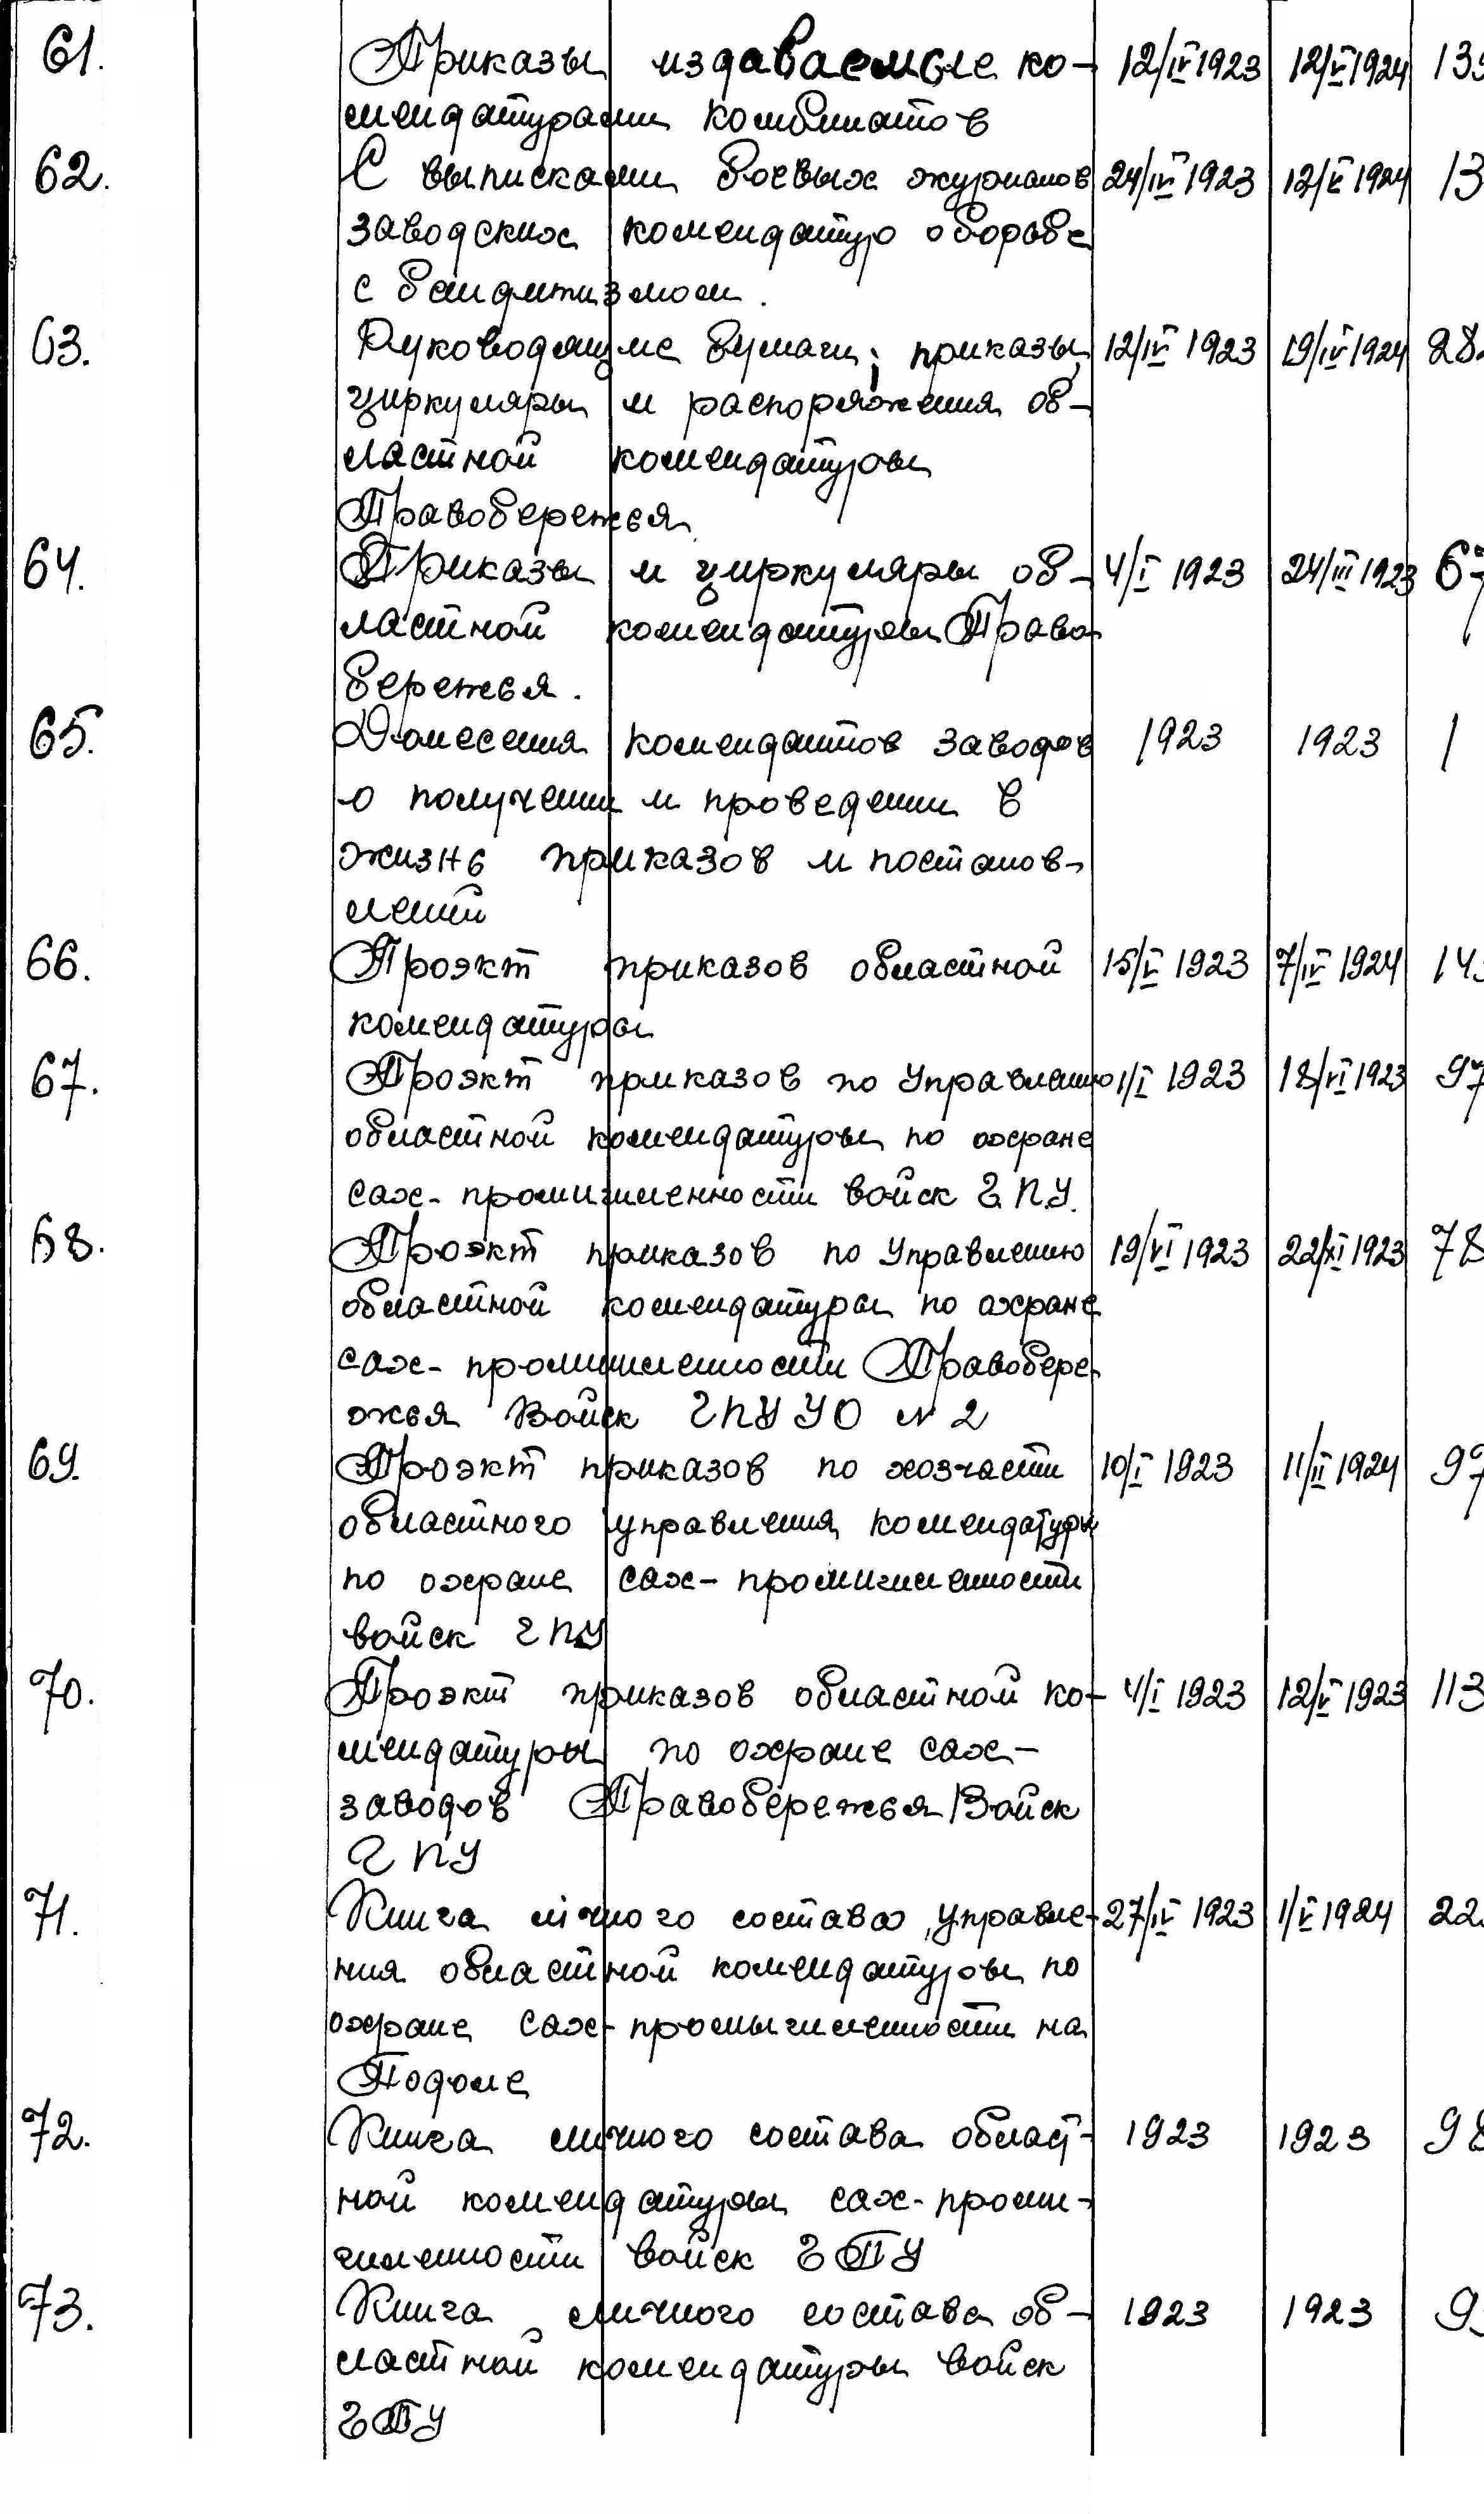 61. Приказы издаваемые ко- 12/IV 1923 12/V 1924
мендатурами комбинатов
62. С выписками боевых журналов 24/IV 1923 12/V 1924 13
заводских комендатур о борьбе
с бандитизмом.
63. Руководящие бумаги; приказы, 12/IV 1923 19/IV 1924 28
циркуляры и распоряжения об-
ластной комендатуры
Правобережья
64. Приказы и циркуляры об- 4/I 1923 24/III 1923 67
ластной комендатуры Право-
бережья.
65. Донесения комендантов заводов 1923 1923 1
о получении и проведении в
жизнь приказов и постанов-
лений
66. Проэкт приказов областной 15/V 1923 7/IV 1924 14
комендатуры
67. Проэкт приказов по Управлению 1/I 1923 18/VI 1923 97
областной комендатуры по охране
сах-промишленности войск Г.П.У.
68. Проэкт приказов по Управлению 19/VI 1923 22/XI 1923 78
областной комендатуры по охране
сах-промишленности Правобере-
жья Войск ГПУ УО N 2
69. Проэкт приказов по хозчасти 10/I 1923 11/II 1924 97
областного управления комендатуры
по охране сах-промишленности
войск ГПУ
70. Проэкт приказов областной ко- 4/I 1923 12/V 1923 113
мендатуры по охране сах-
заводов Правобережья Войск
ГПУ
71. Книга лічного состава управле- 27/IV 1923 1/V 1924 22
ния областной комендатуры по
охране сах-промышленности на
Подоле
72. Книга личного состава област- 1923 1923 98
ной комендатуры сах-проми-
шленности войск ГПУ
73. Книга личного состава об- 1923 1923 9
ластной комендатуры войск
ГПУ